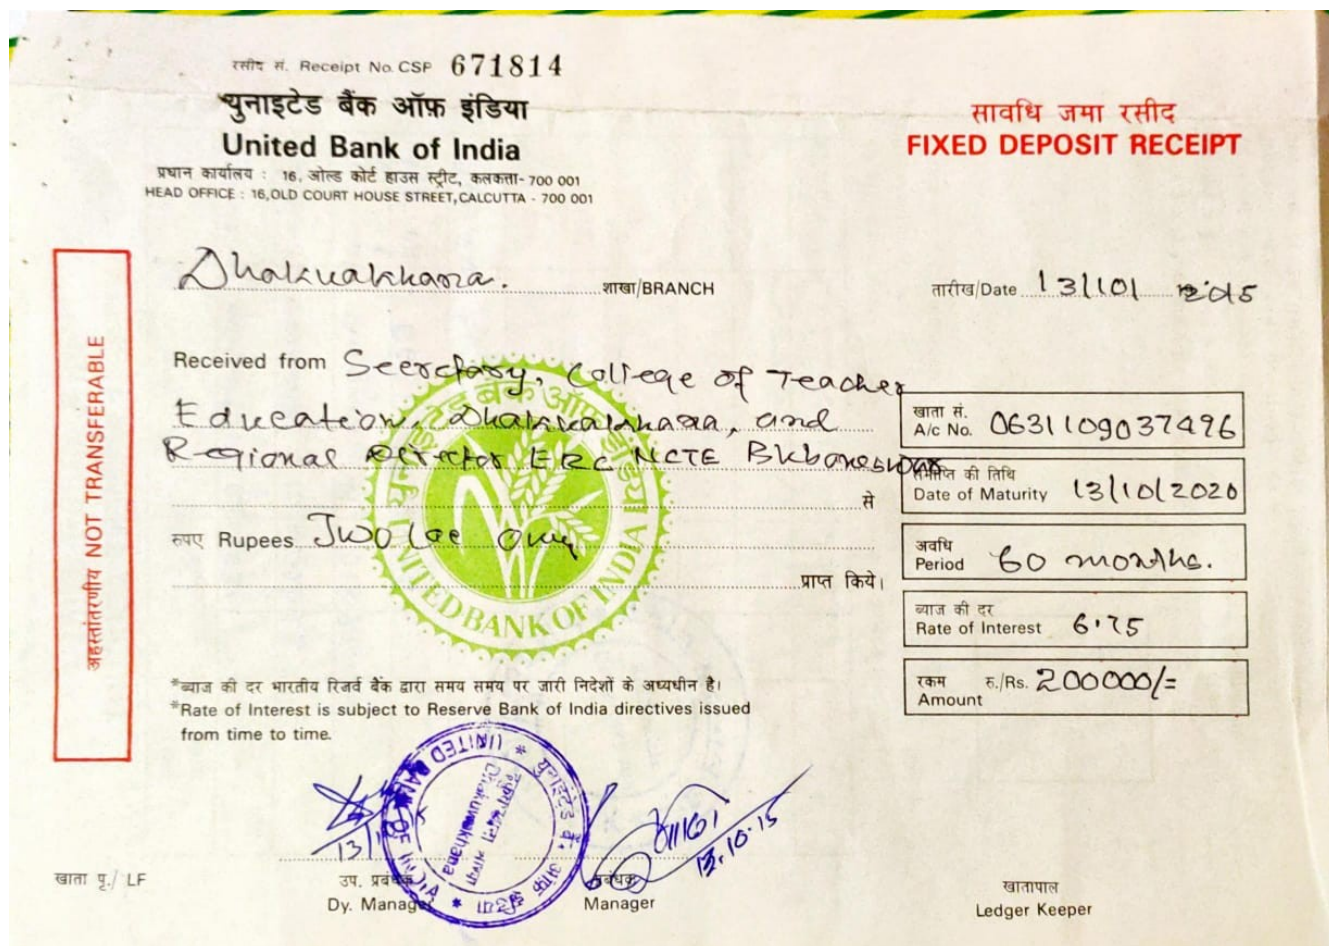 रसीद सं. Receipt No. CSP 671814
युनाइटेड बैंक ऑफ़ इंडिया
United Bank of India
प्रधान कार्यालय : 16, ओल्ड कोर्ट हाउस स्ट्रीट, कलकत्ता- 700 001
HEAD OFFICE : 16, OLD COURT HOUSE STREET, CALCUTTA - 700 001
सावधि जमा रसीद
FIXED DEPOSIT RECEIPT
अहस्तांतरणीय NOT TRANSFERABLE
Dhakuakhana. शाखा/BRANCH
तारीख/Date 13/10/ 2015
Received from Secretary, College of Teacher
Education, Dhakuakhana, and
Regional Director ERC NCTE Bhubaneswar
से
रुपए Rupees Two Lac only
प्राप्त किये।
खाता सं.
A/c No. 0631109037496
समाप्ति की तिथि
Date of Maturity 13/10/2020
अवधि
Period 60 months.
ब्याज की दर
Rate of Interest 6.75
रकम रु./Rs. 200000/=
Amount
युनाइटेड बैंक ऑफ इंडिया
UNITED BANK OF INDIA
*ब्याज की दर भारतीय रिजर्व बैंक द्वारा समय समय पर जारी निदेशों के अध्यधीन है।
*Rate of Interest is subject to Reserve Bank of India directives issued
from time to time.
UNITED BANK OF INDIA
Dhakuwakhana
13.10.15
खाता पृ./ LF
उप. प्रबंधक
Dy. Manager
प्रबंधक
Manager
खातापाल
Ledger Keeper